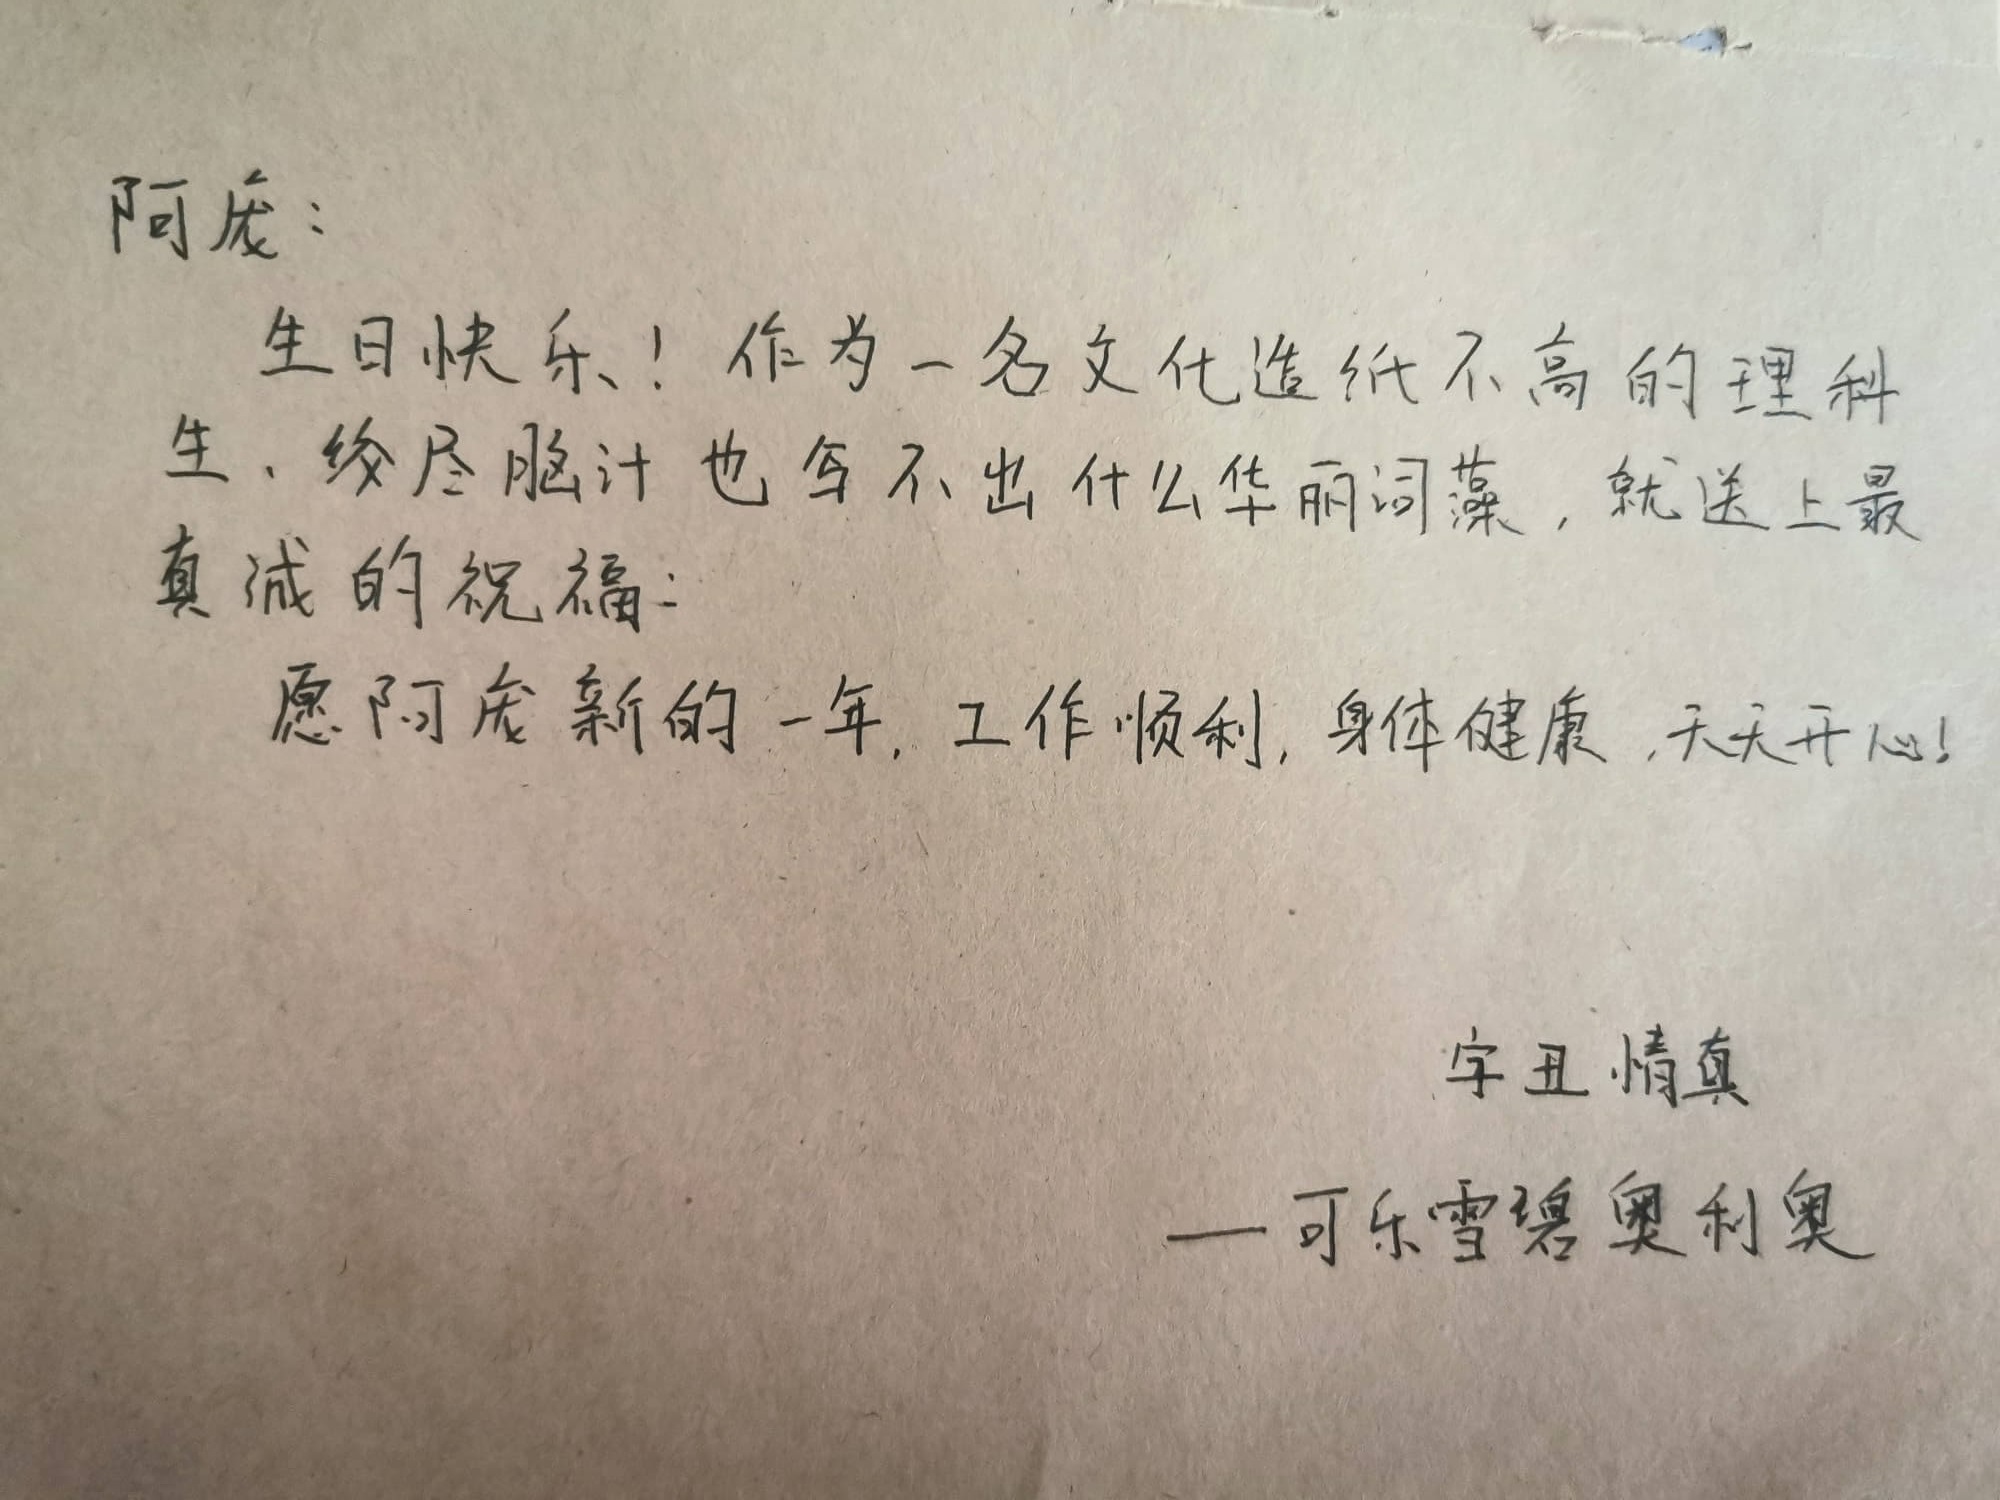 阿庞：
生日快乐！作为一名文化造纸不高的理科
生、绞尽脑计也写不出什么华丽词藻，就送上最
真诚的祝福：
愿阿庞新的一年，工作顺利，身体健康，天天开心！
字丑情真
—可乐雪碧奥利奥